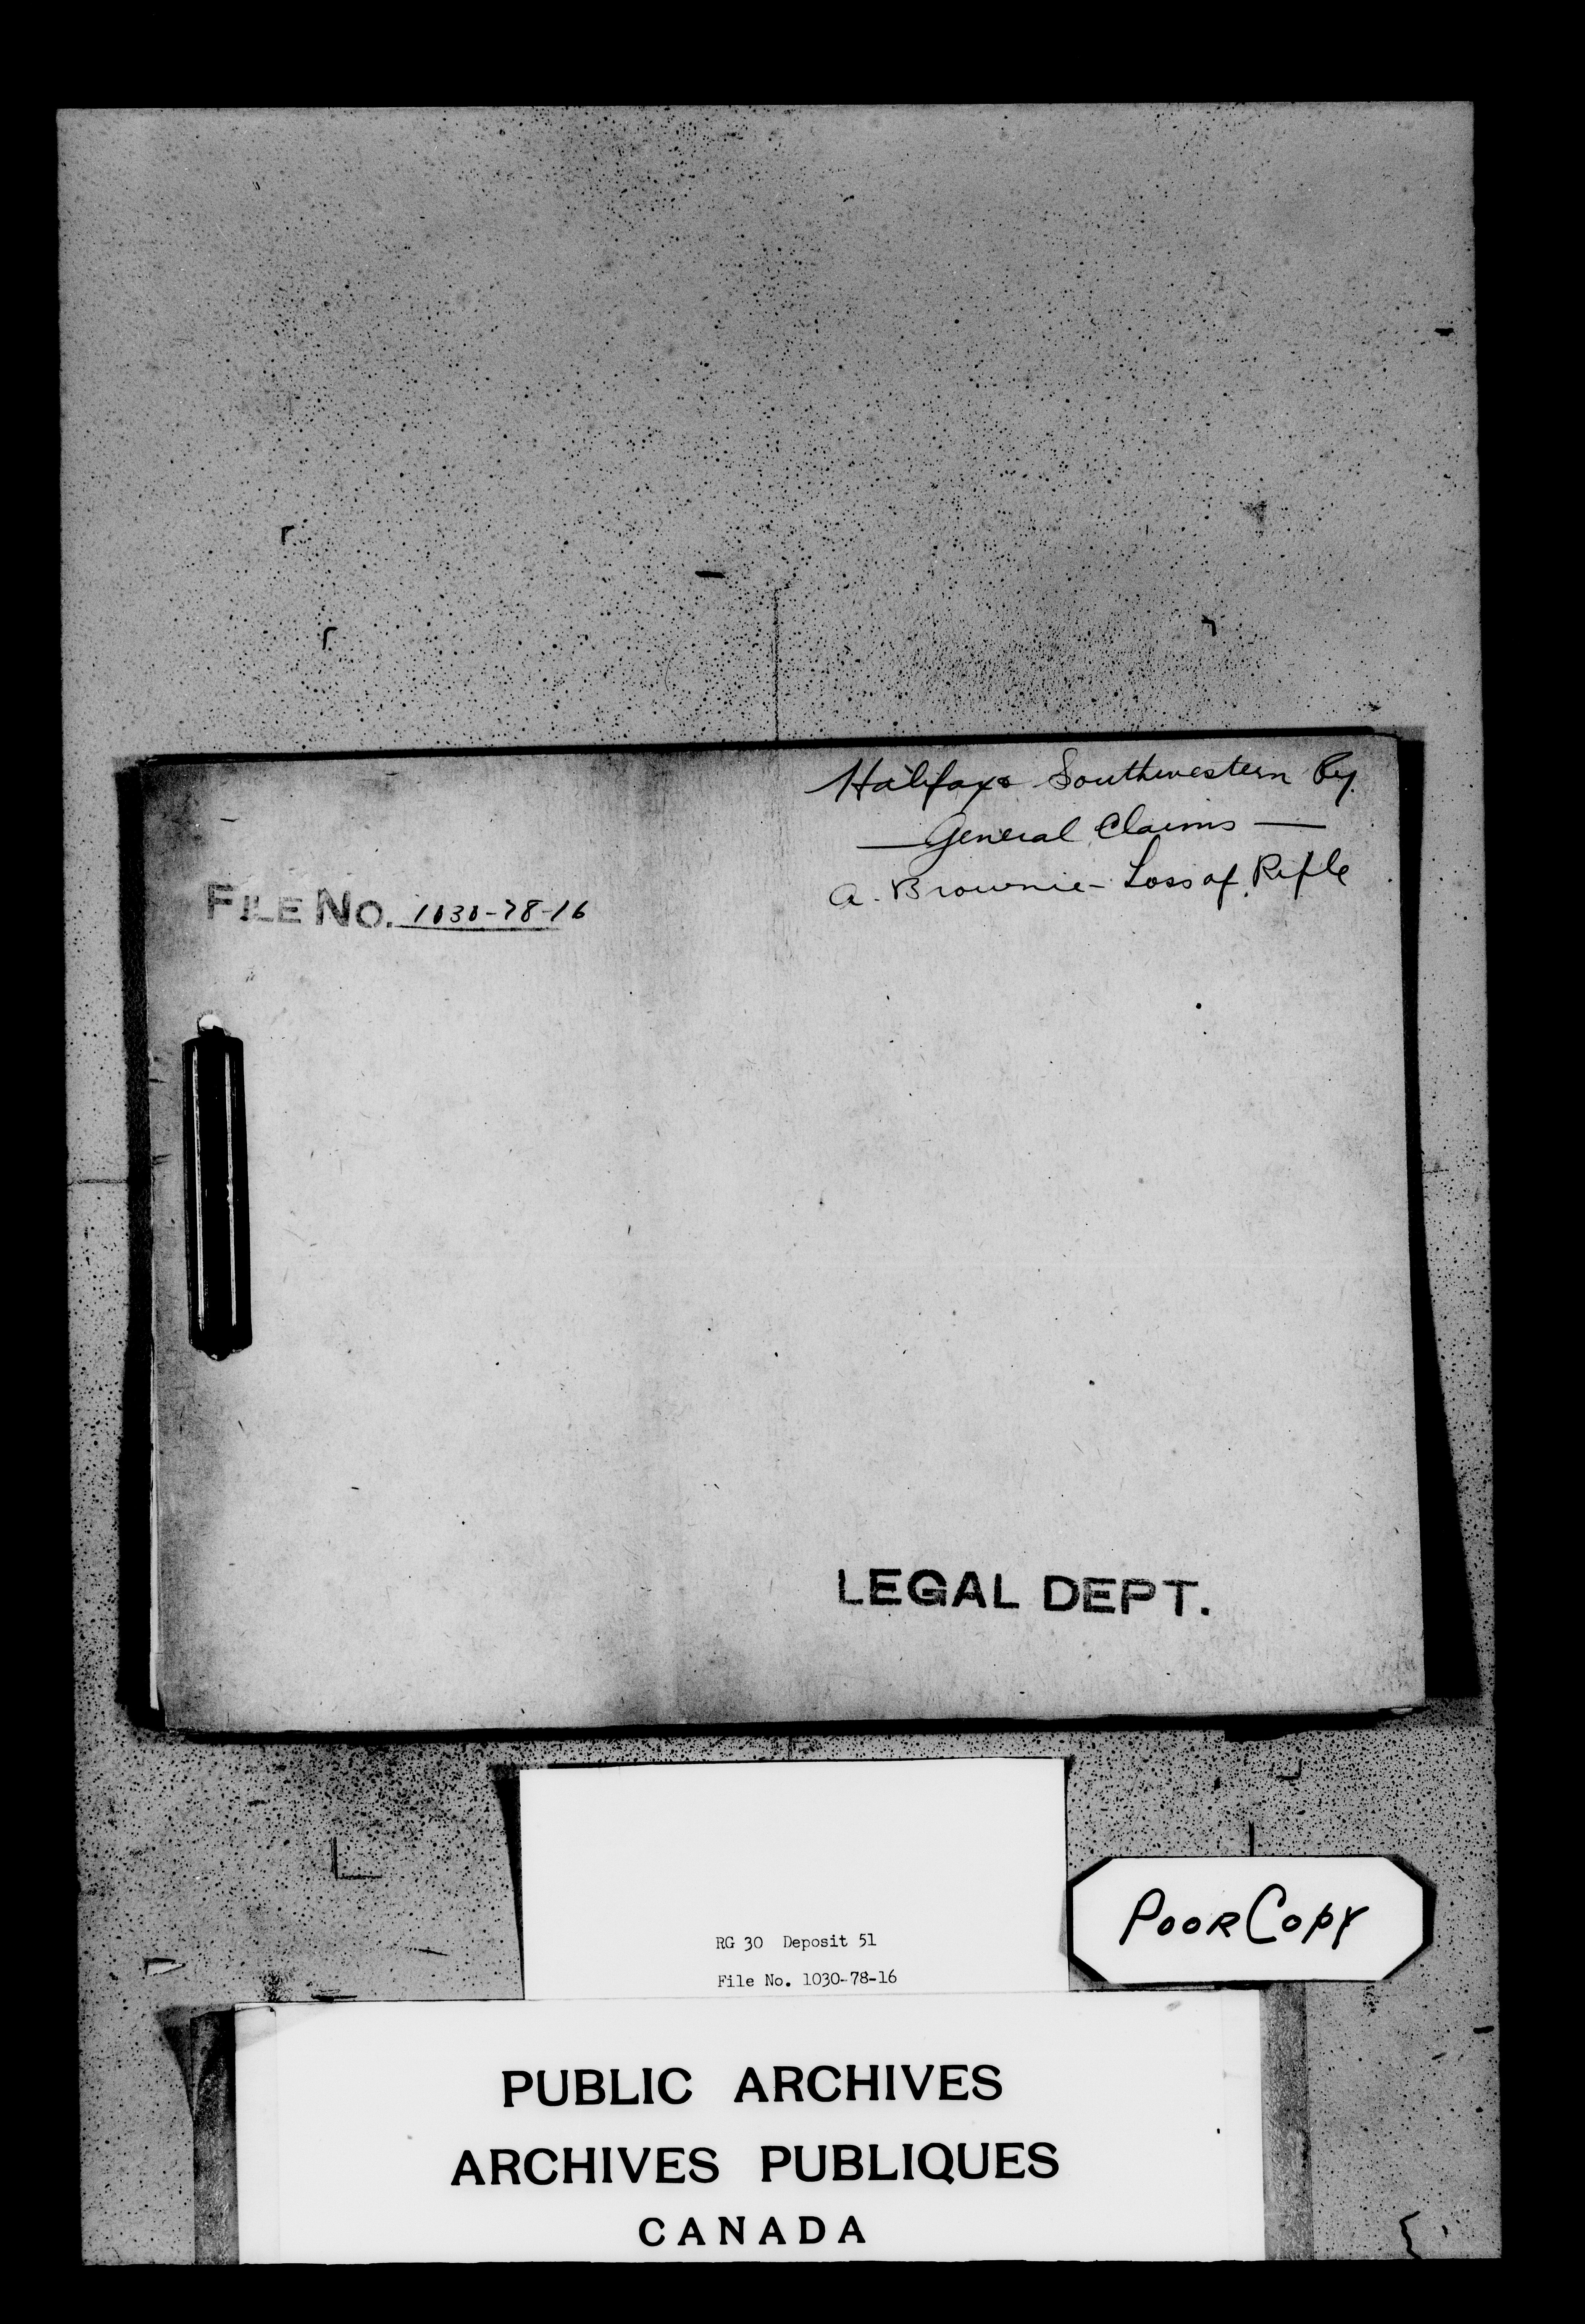 Halifax & Southwestern Ry.
— General Claims —
A. Brownie - Loss of Rifle
FILE NO. 1030-78-16
LEGAL DEPT.
RG 30 Deposit 51
File No. 1030-78-16
POOR COPY
PUBLIC ARCHIVES
ARCHIVES PUBLIQUES
CANADA